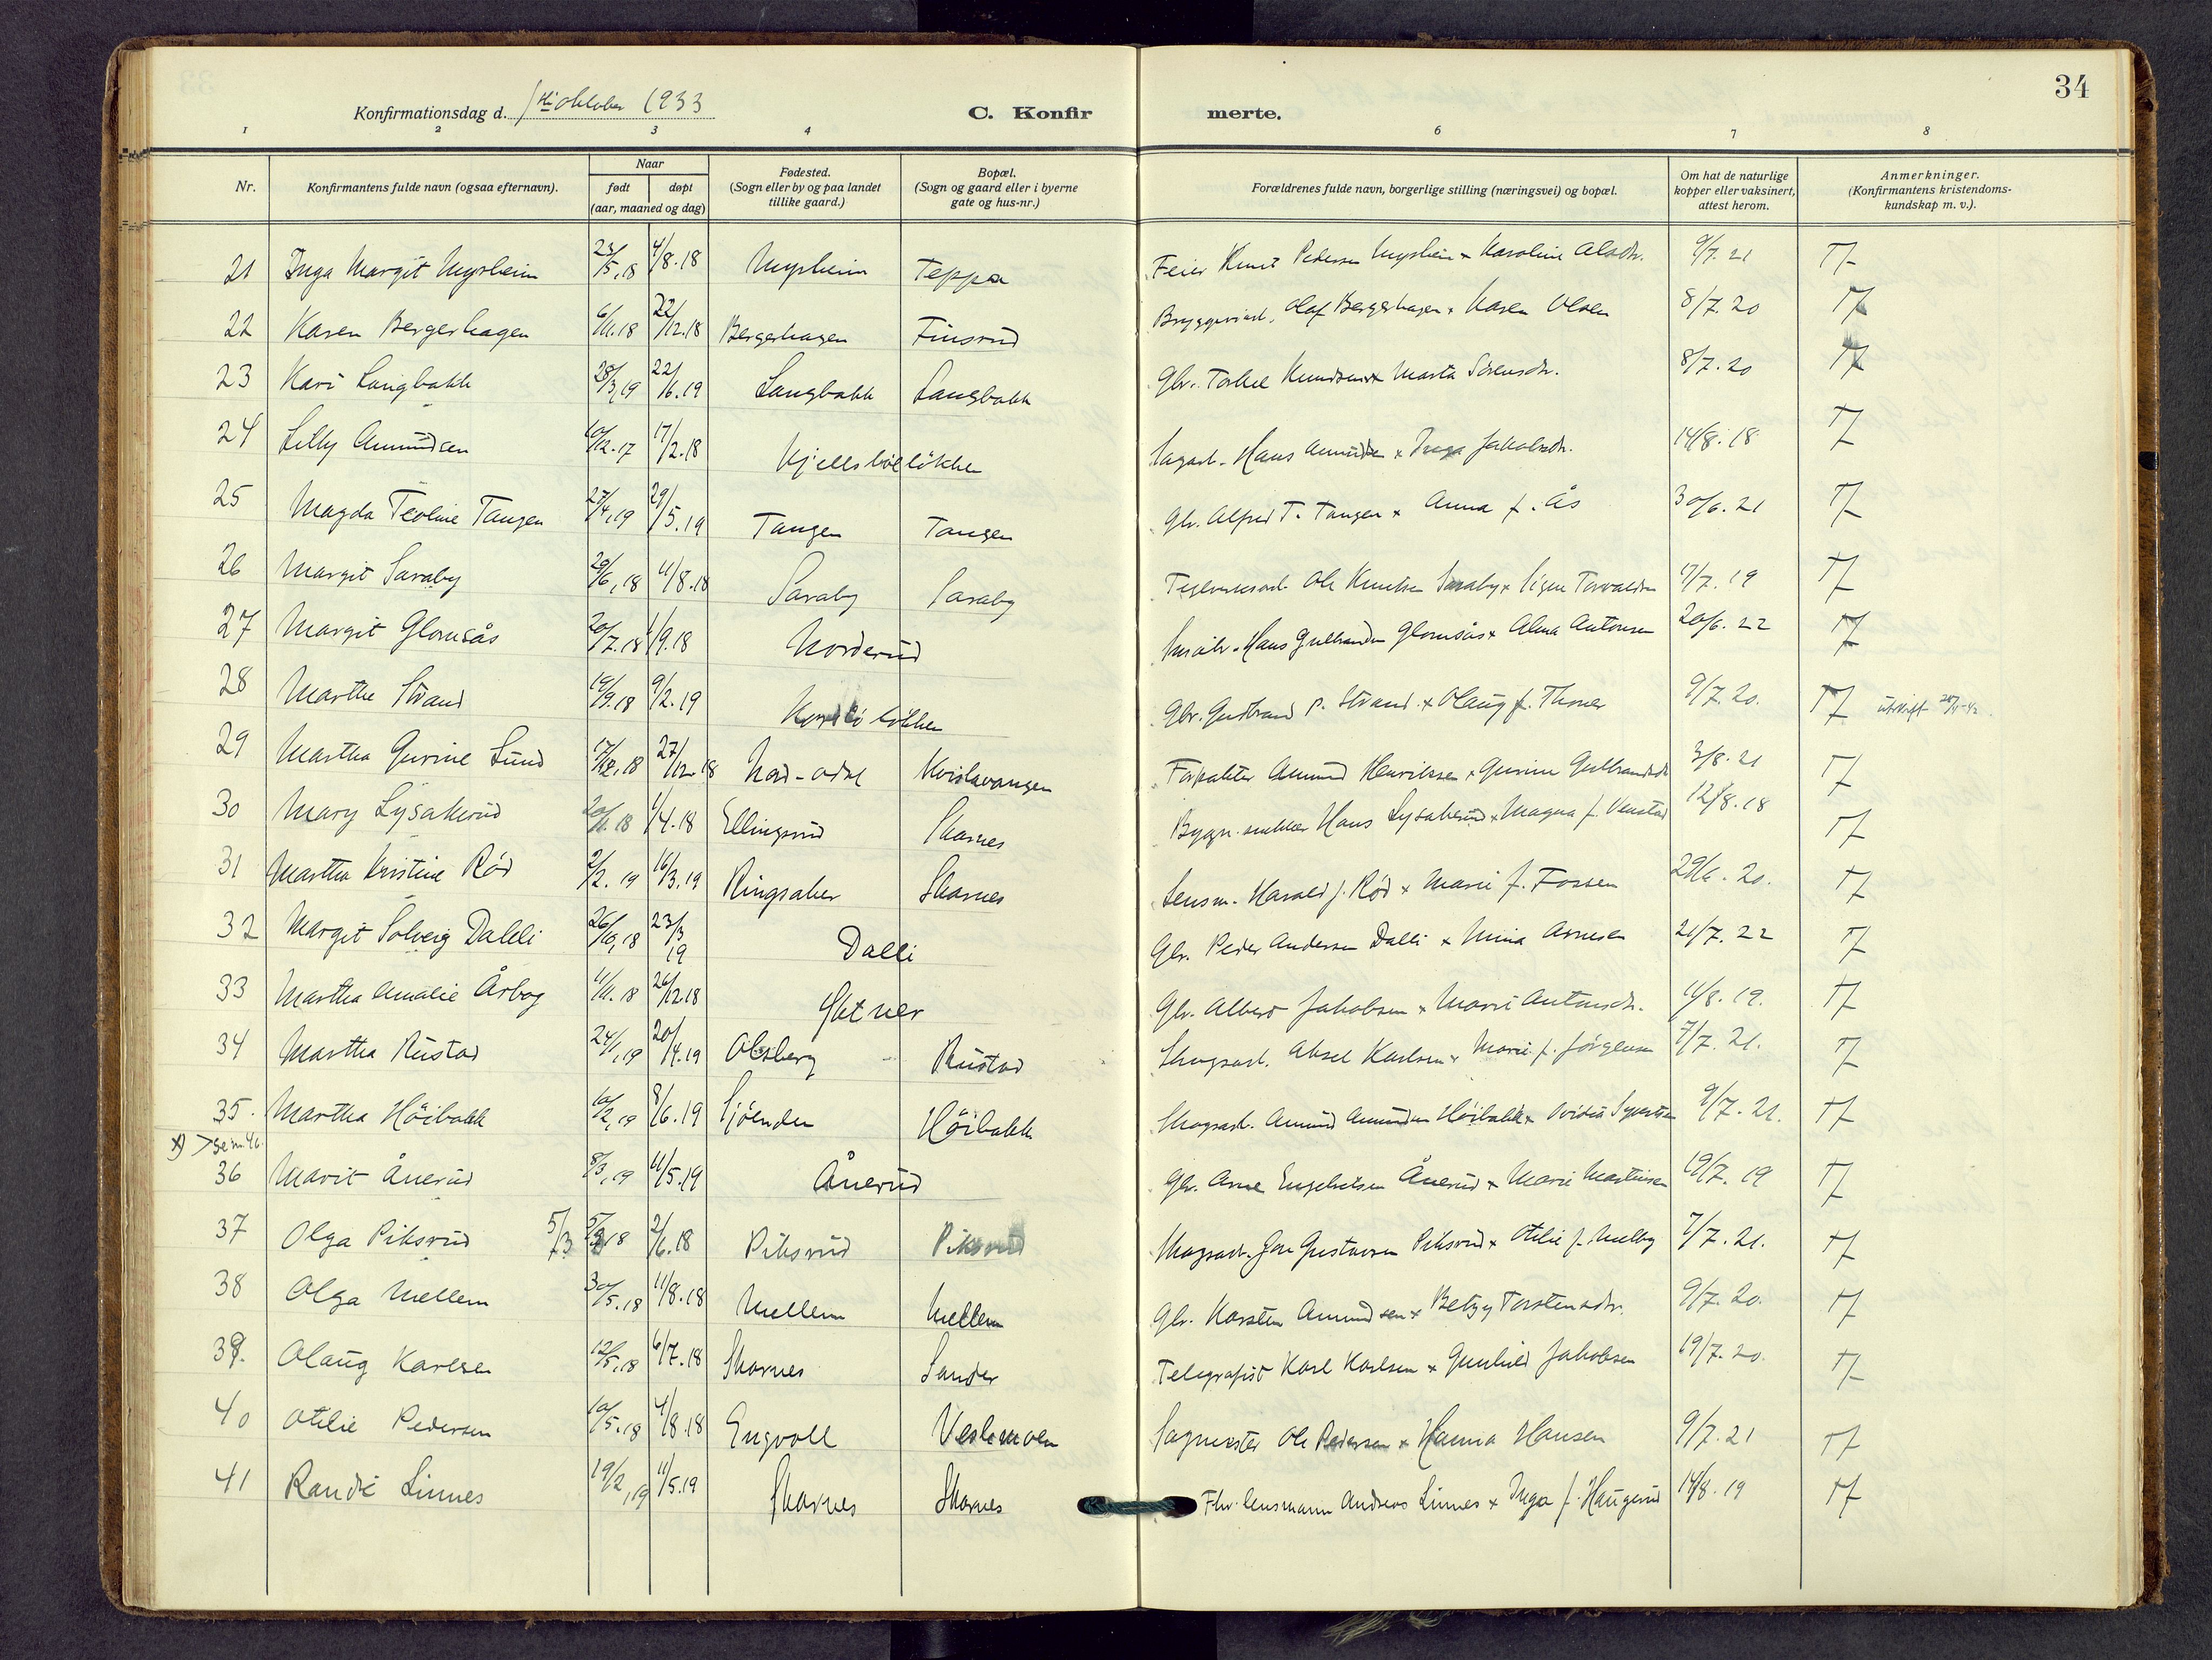 34
Konfirmationsdag d. 1ste oktober 1933
C. Konfirmerte.
1 2 3 4 6 7 8
Nr.
Konfirmantens fulde navn (ogsaa efternavn).
Naar
født døpt
(aar, maaned og dag)
Fødested.
(Sogn eller by og paa landet
tillike gaard.)
Bopæl.
(Sogn og gaard eller i byerne
gate og hus-nr.)
Forældrenes fulde navn, borgerlige stilling (næringsvei) og bopæl.
Om hat de naturlige
kopper eller vaksinert,
attest herom.
Anmerkninger.
(Konfirmantens kristendoms-
kundskap m. v.).
21 Inga Margit Myrheim 23/5.18 4/8.18 Myrheim Teppa Feier Knut Pedersen Myrheim x Karoline Alsdtr. 9/7.21
22 Karen Bergerhagen 6/11.18 22/12.18 Bergerhagen Finsrud Olaf Bergerhagen x Karen Olsen 8/7.20
23 Kari Langbakk 28/3.19 22/6.19 Langbakk Langbakk Gbr. Torkel Knudsen x Marta Sörensdtr. 8/7.20
24 Lilly Amundsen 10/12.17 17/2.18 Kjellsbölløkken Hans Amundsen x Inga Jakobsdtr. 14/8.18
25 Magda Teoline Tangen 27/4.19 29/5.19 Tangen Tangen Gbr. Alfred T. Tangen x Anna f. Ås 30/6.21
26 Margit Saraby 29/6.18 11/8.18 Saraby Saraby Teglverksarb. Ole Knutsen Saraby x Signe 17/7.19
27 Margit Glomsås 20/7.18 1/9.18 Norderud Hans Gulbrandsen Glomsås x Alma Antonsen 20/6.22
28 Marthe Strand 19/9.18 9/2.19 Gbr. Gudbrand P. Strand x Olaug f. Thoner 9/7.20
29 Martha Gurine Lund 17/12.18 27/12.18 Nord-Odal Kvislavangen Forpakter Amund Henriksen x Gurine Gulbrandsdtr 3/8.21
30 Mary Lysakerud 1/4.18 Ellingsrud Skarnes Bygn.snekker Hans Lysakerud x Magna f. Venstad 12/8.18
31 Martha Kristine Rød 2/2.19 16/3.19 Ringsaker Skarnes Lensm. Harald J. Rød x Marie f. Fossen 29/6.20.
32 Margit Solveig Dalli 26/10.18 23/3 19 Dalli Gbr. Peder Andersen Dalli x Mina Arnesen 21/7.22
33 Martha Amalie Årbog 4/11.18 26/12.18 Gbr. Albert Jakobsen x Marie Antonsdtr. 11/8.19.
34 Martha Rustad 24/1.19 20/4.19 Olsberg Rustad Skogsarb. Aksel Karlsen x Marie f. Jörgensen 7/7.21.
35. Martha Höibakk 10/2.19 8/6.19 Sjöenden Höibakk Skogsarb. Amund Amundsen Höibakk x Ovidia Syvertsen 9/7.21.
x) > Se nr. 46.
36 Marit Ånerud 8/3.19 11/5.19 Ånerud Gbr. Arne Engebretsen Ånerud x Marie Martinsen 19/7.19
37 Olga Piksrud 5/3 18 2/6.18 Piksrud Piksrud Skogsarb. Jon Gustavsen Piksrud x Otilie f. Melby 7/7.21.
38 Olga Mellem 30/5.18 11/8.18 Mellem Mellem Gbr. Karsten Amundsen x Betzy Torstensdtr. 9/7.20.
39. Olaug Karlsen 12/5.18 6/7.18 Skarnes Sander Telegrafist Karl Karlsen x Gunhild Jakobsen 19/7.20.
40 Otilie Pedersen 10/5.18 4/8.18 Engvoll Veslemoen Sagmester Ole Pedersen x Hanna Hansen 9/7.21
41 Randi Linnes 19/2.19 11/5.19 Skarnes Skarnes Fhv. lensmann Andreas Linnes x Inga f. Haugerud 14/8.19